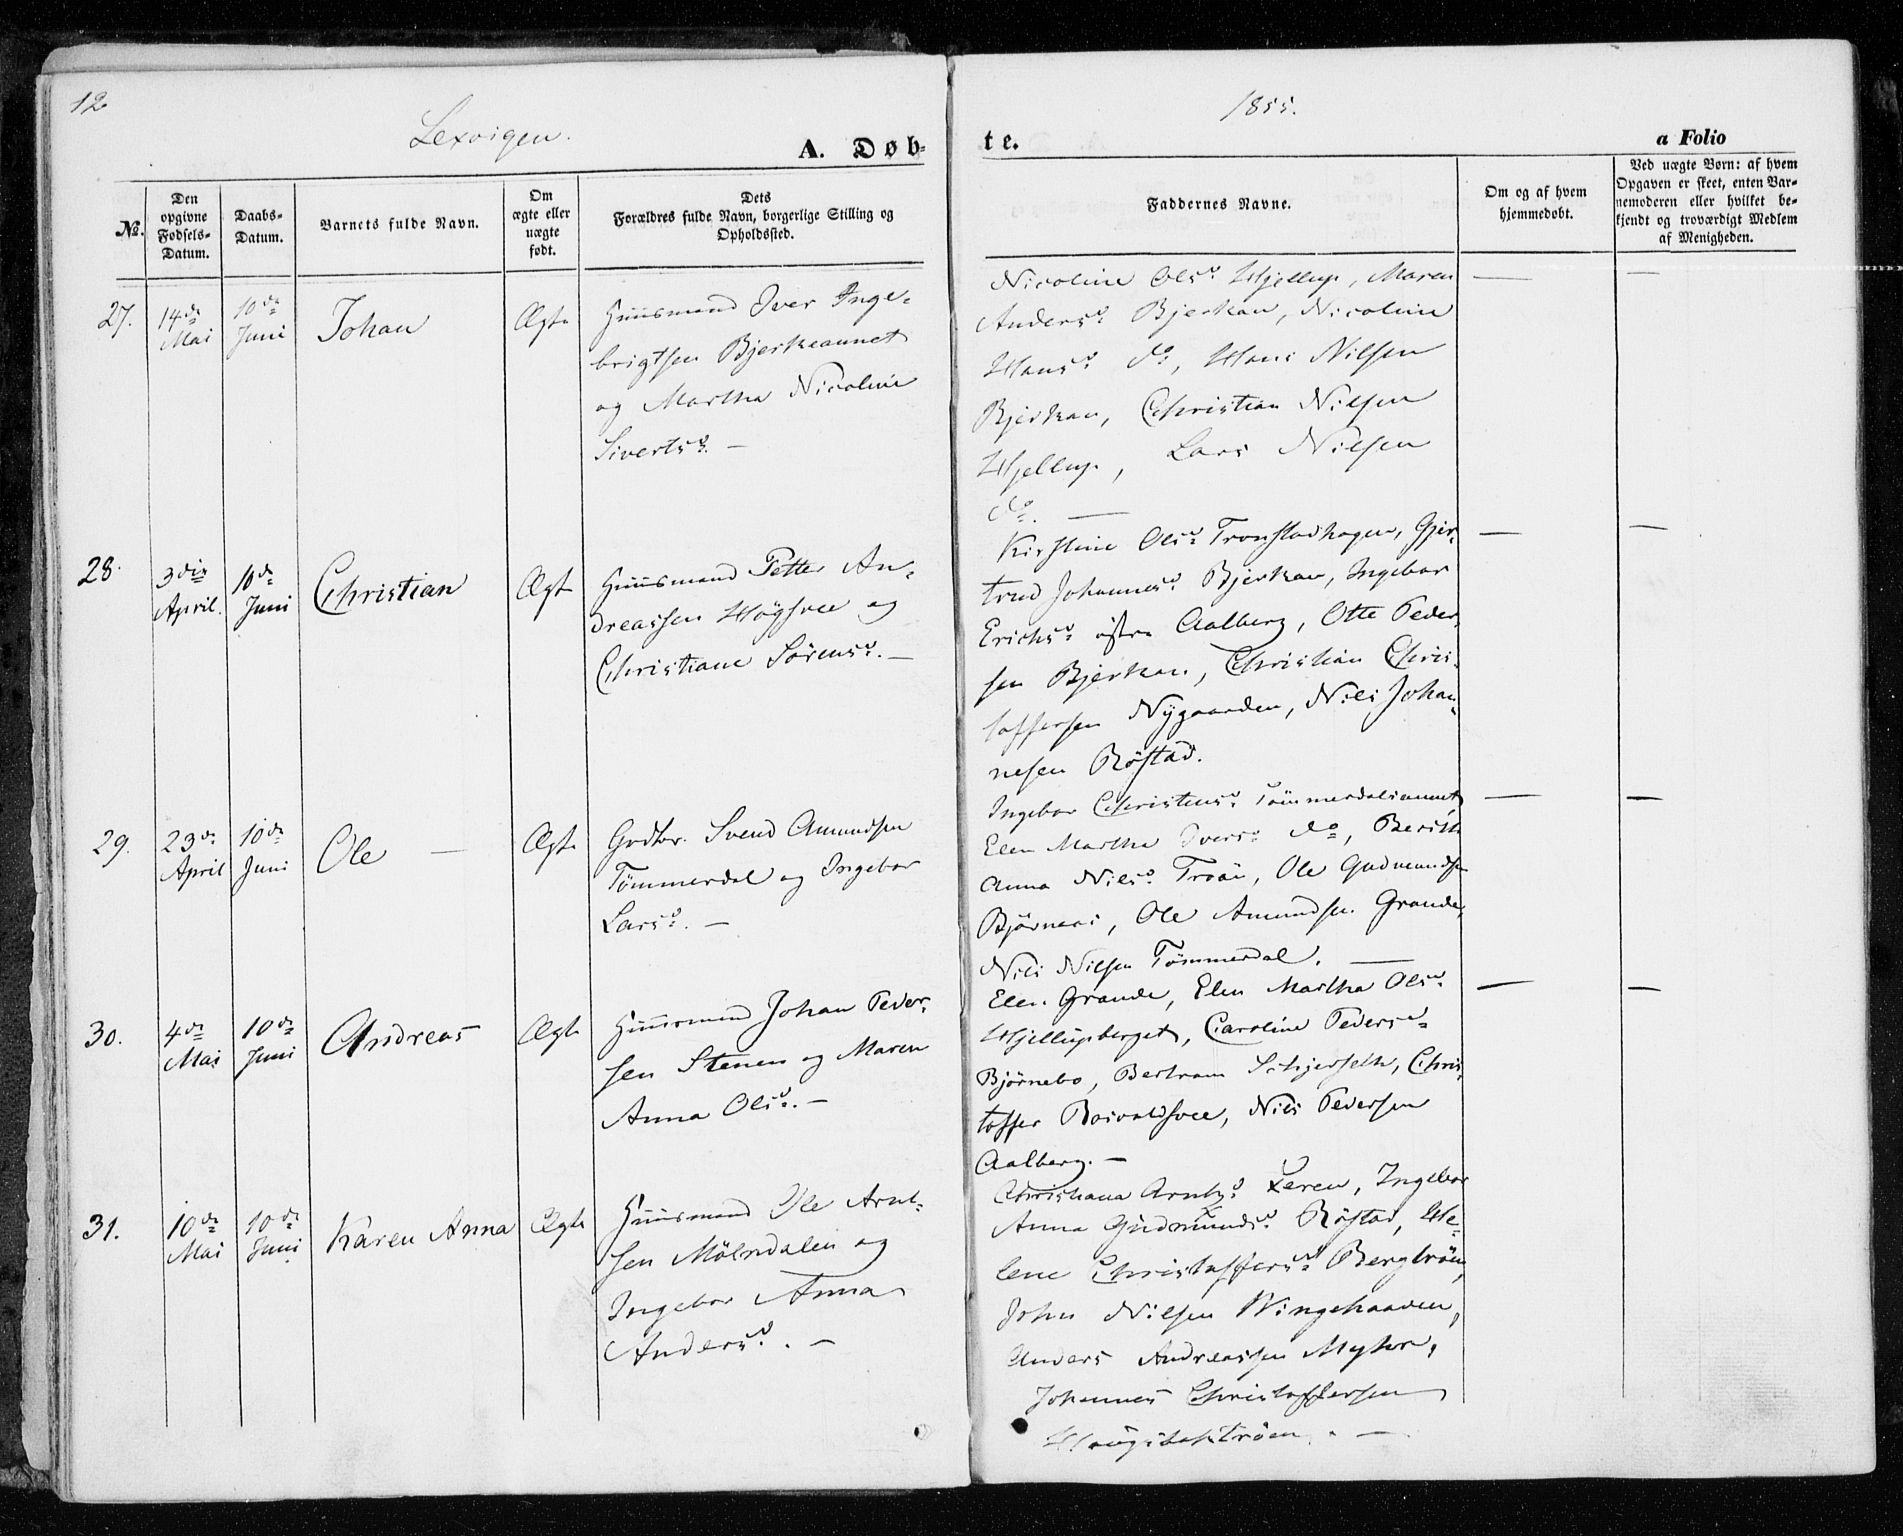 12
Lexvigen.
1855.
A. Døb-
te.
a Folio
No.
Den opgivne Fødsels-Datum.
Daabs-Datum.
Barnets fulde Navn.
Om ægte eller uægte født.
Dets Forældres fulde Navn, borgerlige Stilling og Opholdssted.
Faddernes Navne.
Om og af hvem hjemmedøbt.
Ved uægte Børn: af hvem Opgaven er skeet, enten Barnemoderen eller hvilket bekjendt og troværdigt Medlem af Menigheden.
27.
14de Mai
10de Juni
Johan
Ægte
Huusmand Iver Inge-
brigtsen Bjerkeaunet
og Martha Nicoline
Sivertsd. —
Nicoline Olsd. Hjellup, Maren
Andersd. Bjerkan, Nicoline
Hansd. do, Hans Nilsen
Bjerkan, Christian Nilsen
Hjellup, Lars Nilsen
do. —
28.
3die April.
10de Juni
Christian
Ægte
Huusmand Petter An-
dreassen Högsvee og
Christiane Sörensd. —
Kirstine Olsd. Tronstadhagen, Gjer-
trud Johannesd. Bjerkan, Ingebor
Erichsd. östre Aalberg, Otte Peder-
sen Bjerkan, Christian Chris-
toffersen Nygaarden, Nils Johan-
nesen Röstad.
29.
23de April
10de Juni
Ole —
Ægte
Grdbr. Svend Amundsen
Tömmerdal og Ingebor
Larsd. —
Ingebor Christensd. Tömmerdalsaunet,
Elen Martha Iversd. do, Berith
Anna Nilsd. Troän, Ole Gudmundsen
Björnaas, Ole Amundsen Grande,
Nils Nilsen Tömmerdal. —
30.
4de Mai
10de Juni
Andreas
Ægte
Huusmand Johan Peder-
sen Stenen og Maren
Anna Olsd. —
Elen Grande, Elen Martha Olsd.
Hjellupberget, Caroline Pedersd.
Björnebo, Bertram Schjerseth, Chris-
toffer Rosvoldsvee, Nils Pedersen
Aalberg. —
31.
10de Mai
10de Juni
Karen Anna
Ægte
Huusmand Ole Arnt-
sen Mölndalen og
Ingebor Anna
Andersd. —
Christiana Arntzd. Leren, Ingebor
Anna Gudmundsd. Röstad, He-
lene Christoffersd. Bergtröen,
John Nilsen Wingehaaven,
Anders Andreassen Myhr,
Johannes Christoffersen